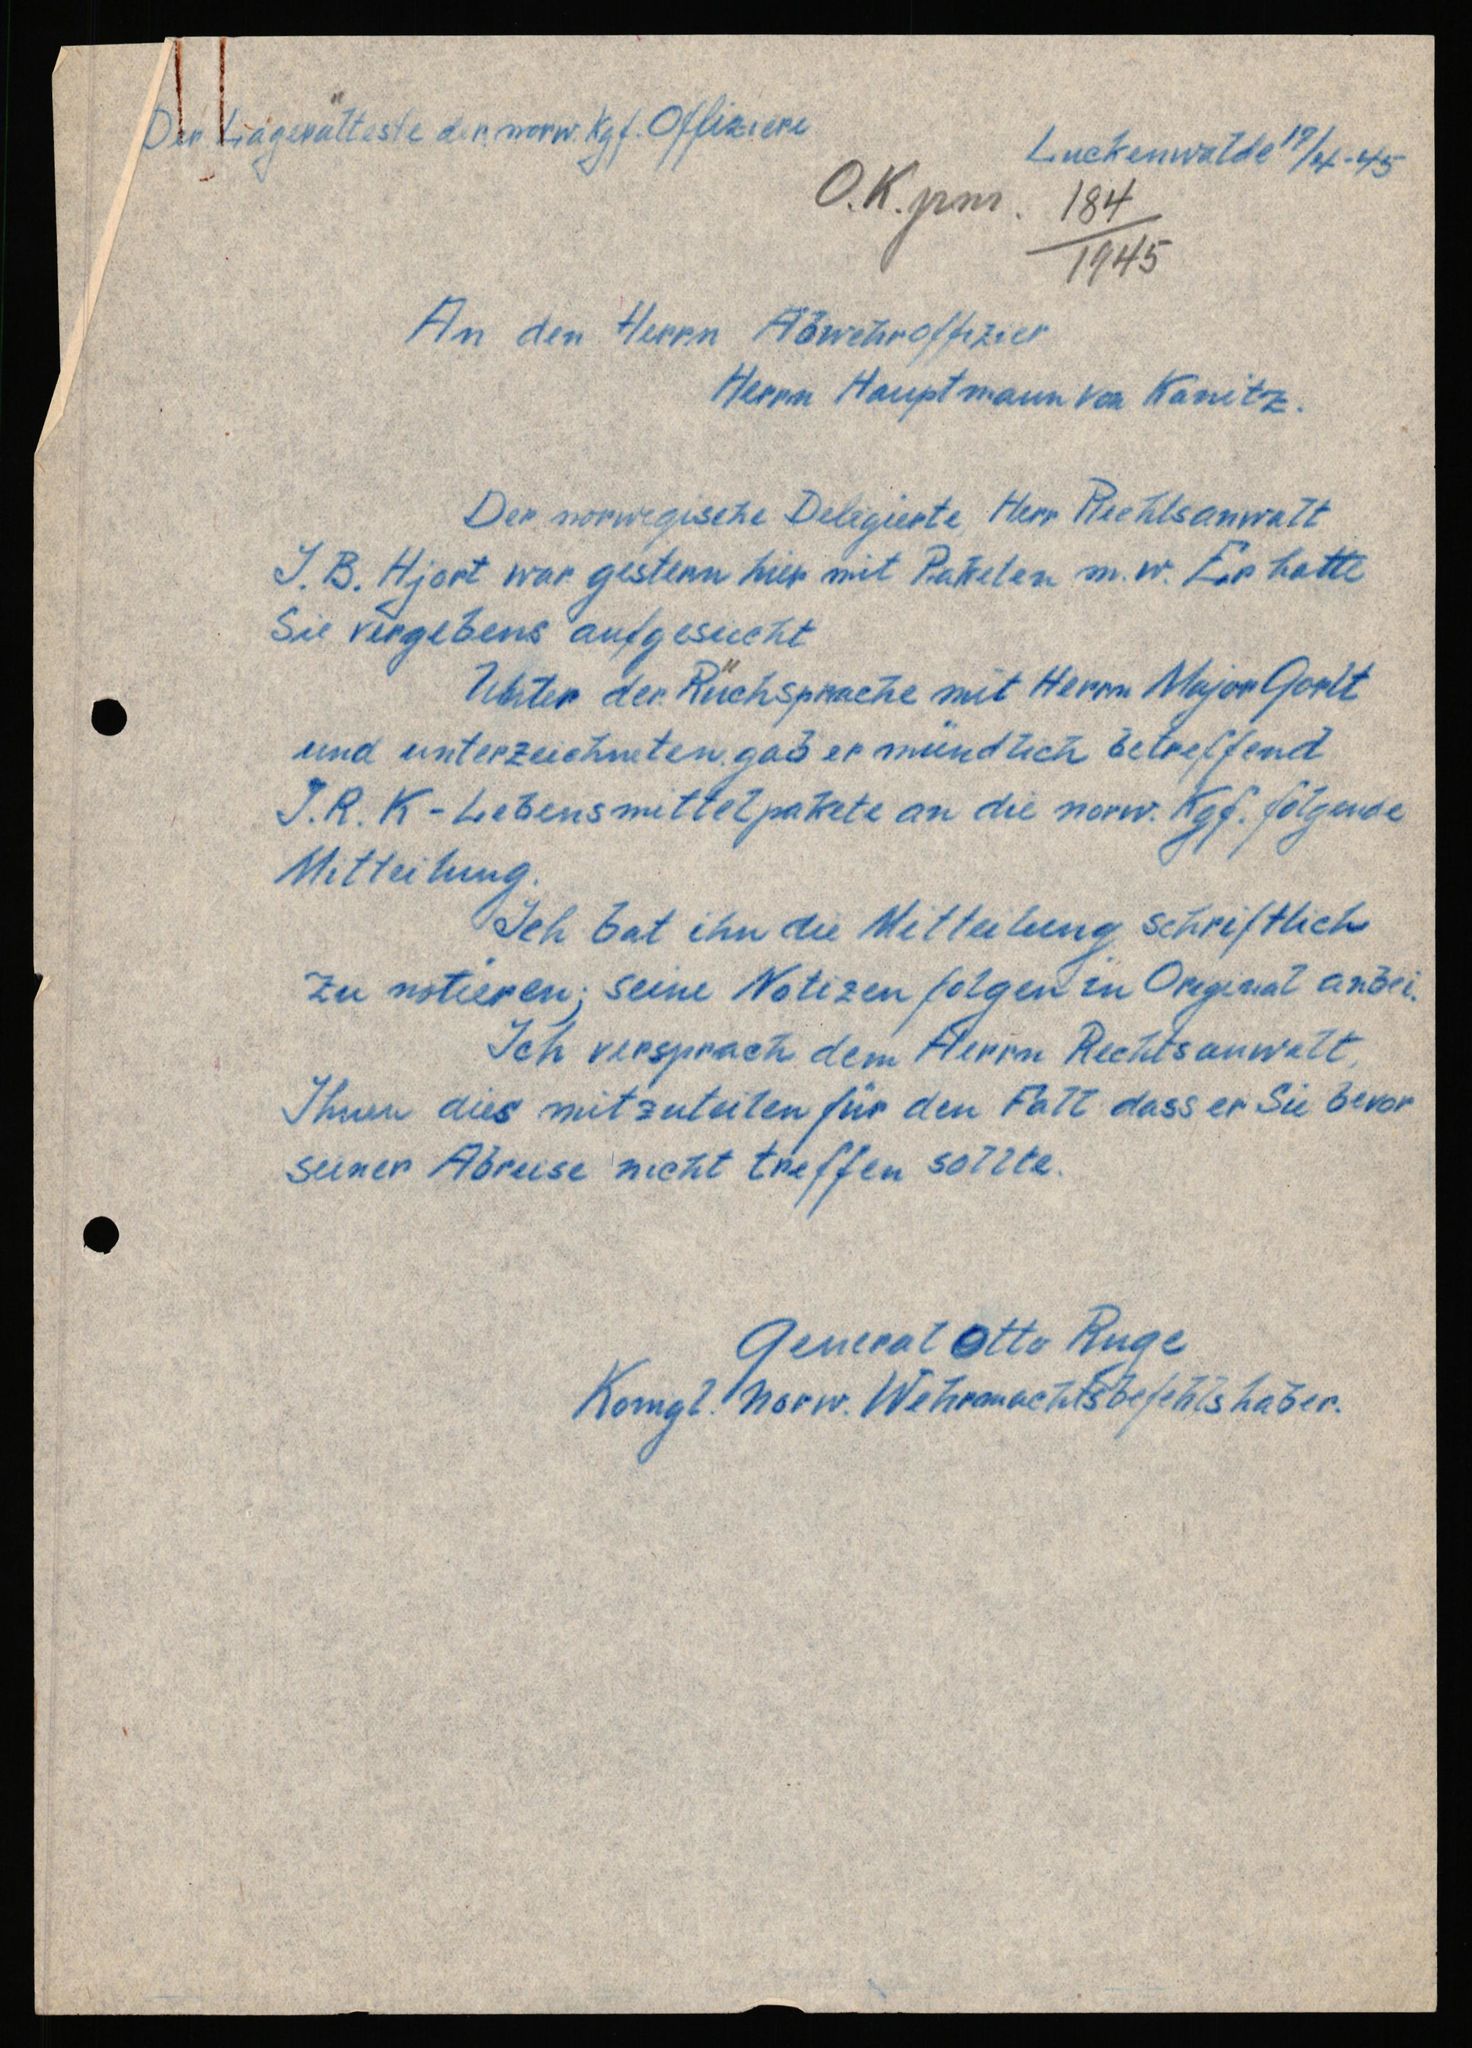 Der Lagerälteste der norw. Kgf. Offiziere
Luckenwalde 19/4-45
O.K. jrnr. 184/1945
An den Herrn Abwehroffizier
Herrn Hauptmann von Kanitz.
Der norwegische Delegierte, Herr Rechtsanwalt
J.B. Hjort war gestern hier mit Paketen m.w. Er hatte
Sie vergebens aufgesucht
Unter der Rüchsprache mit Herrn Major
und unterzeichneten gab er mündlich betreffend
I.R.K-Lebensmittelpakete an die norw. Kgf. folgende
Mitteilung.
Ich bat ihn die Mitteilung schriftlich
zu notieren; seine Notizen folgen in Original anbei.
Ich versprach dem Herrn Rechtsanwalt,
Ihnen dies mitzuteilen für den Fall dass er Sie bevor
seiner Abreise nicht treffen sollte.
General Otto Ruge
Komgl. Norw. Wehrmachtsbefehlshaber.